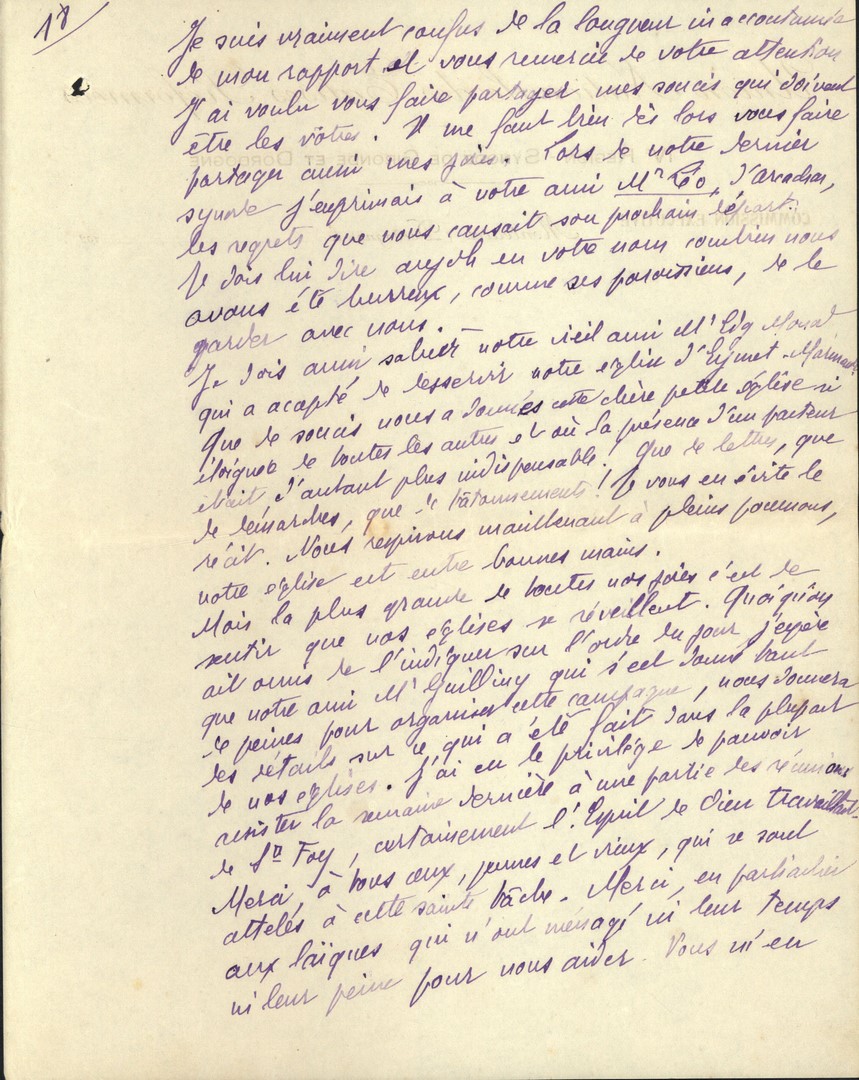 18/
Je suis vraiment confus de la longueur inaccoutumée
de mon rapport et vous remercie de votre attention
J'ai voulu vous faire partager mes soucis qui doivent
être les vôtres. Il me faut bien dès lors vous faire
partager aussi mes joies. Lors de notre dernier
synode j'exprimais à votre ami Mr Co, d'Arcachon,
les regrets que nous causait son prochain départ.
Je dois lui dire aujdh en votre nom combien nous
avons été heureux, comme ses paroissiens, de le
garder avec nous.
Je dois aussi saluer notre vieil ami Mr Edg Monod
qui a accepté de desservir notre église d'Eymet-Marmande
Que de soucis nous a donnés cette chère petite église si
éloignée de toutes les autres et où la présence d'un pasteur
était d'autant plus indispensable! Que de lettres, que
de démarches, que de tâtonnements! Je vous en évite le
récit. Nous respirons maintenant à pleins poumons,
notre église est entre bonnes mains.
Mais la plus grande de toutes nos joies c'est de
sentir que nos églises se réveillent. Quoiqu'on
ait omis de l'indiquer sur l'ordre du jour j'espère
que notre ami Mr qui s'est donné tant
de peines pour organiser cette campagne, nous donnera
les détails sur ce qui a été fait dans la plupart
de nos églises. J'ai eu le privilège de pouvoir
assister la semaine dernière à une partie des réunions
de Ste Foy, certainement l'Esprit de Dieu travaillait.
Merci, à tous ceux, jeunes et vieux, qui se sont
attelés à cette sainte tâche. Merci, en particulier
aux laïques qui n'ont ménagé ni leur temps
ni leur peine pour nous aider. Vous m'en